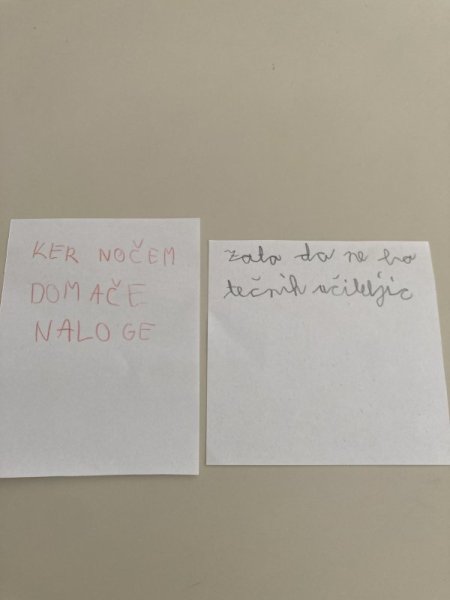 KER NOČEM
DOMAČE
NALOGE
zato da ne bo
tečnih učiteljic